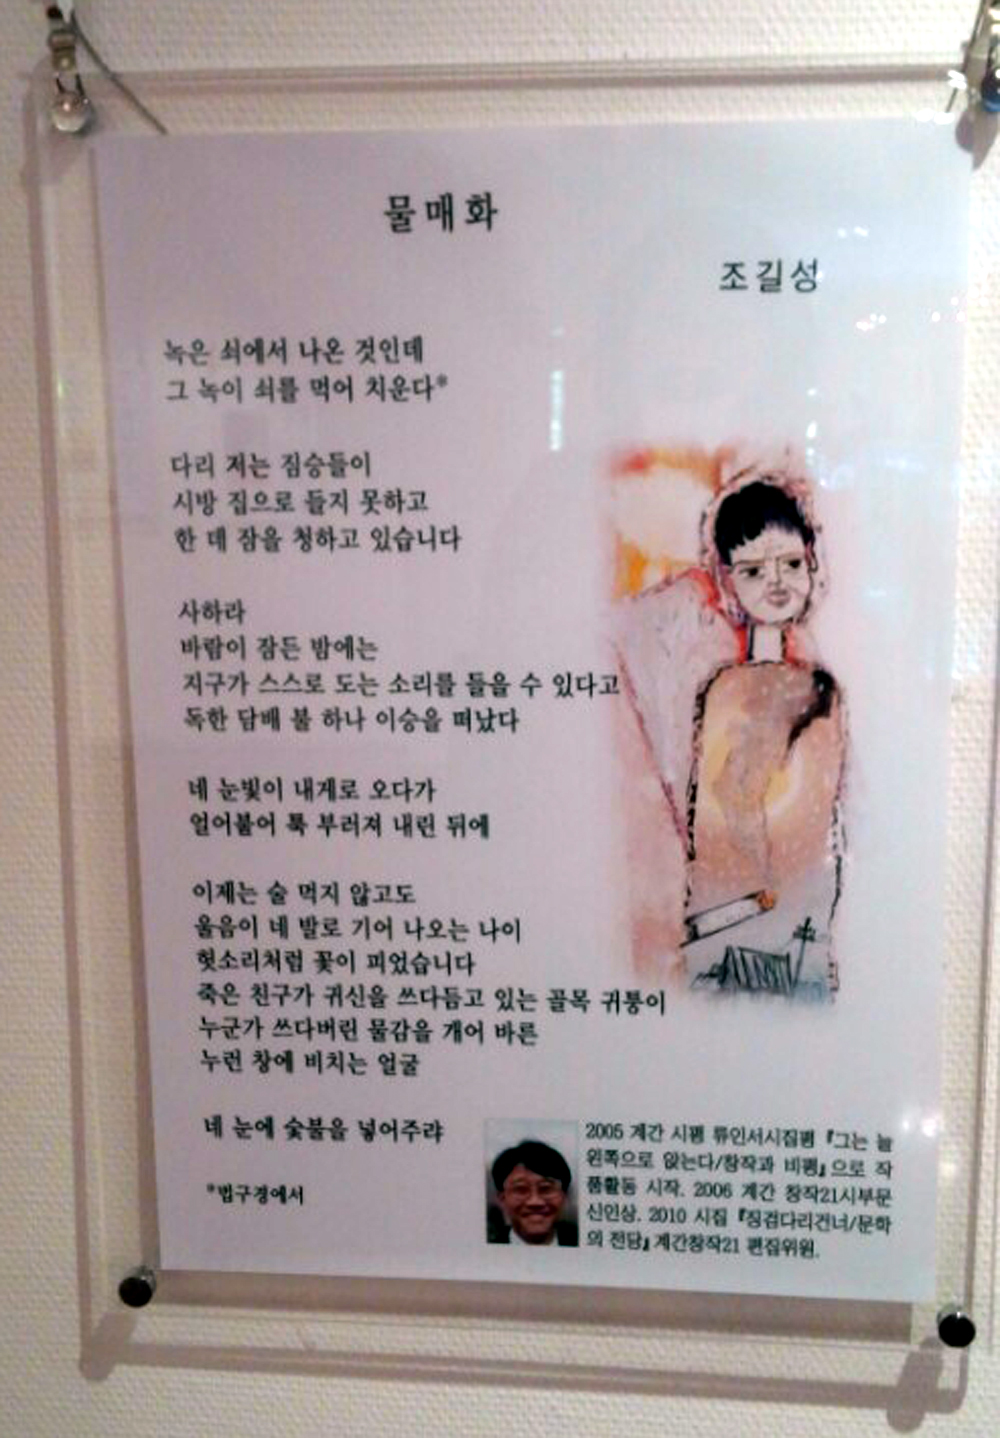 물매화
조길성
녹은 쇠에서 나온 것인데
그 녹이 쇠를 먹어 치운다*
다리 저는 짐승들이
시방 집으로 들지 못하고
한 데 잠을 청하고 있습니다
사하라
바람이 잠든 밤에는
지구가 스스로 도는 소리를 들을 수 있다고
독한 담배 불 하나 이승을 떠났다
네 눈빛이 내게로 오다가
얼어붙어 툭 부러져 내린 뒤에
이제는 술 먹지 않고도
울음이 네 발로 기어 나오는 나이
헛소리처럼 꽃이 피었습니다
죽은 친구가 귀신을 쓰다듬고 있는 골목 귀퉁이
누군가 쓰다버린 물감을 개어 바른
누런 창에 비치는 얼굴
네 눈에 숯불을 넣어주랴
*법구경에서
2005 계간 시평 류인서시집평 『그는 늘
왼쪽으로 앉는다/창작과 비평』으로 작
품활동 시작. 2006 계간 창작21시부문
신인상. 2010 시집 『징검다리건너/문학
의 전당』계간창작21 편집위원.